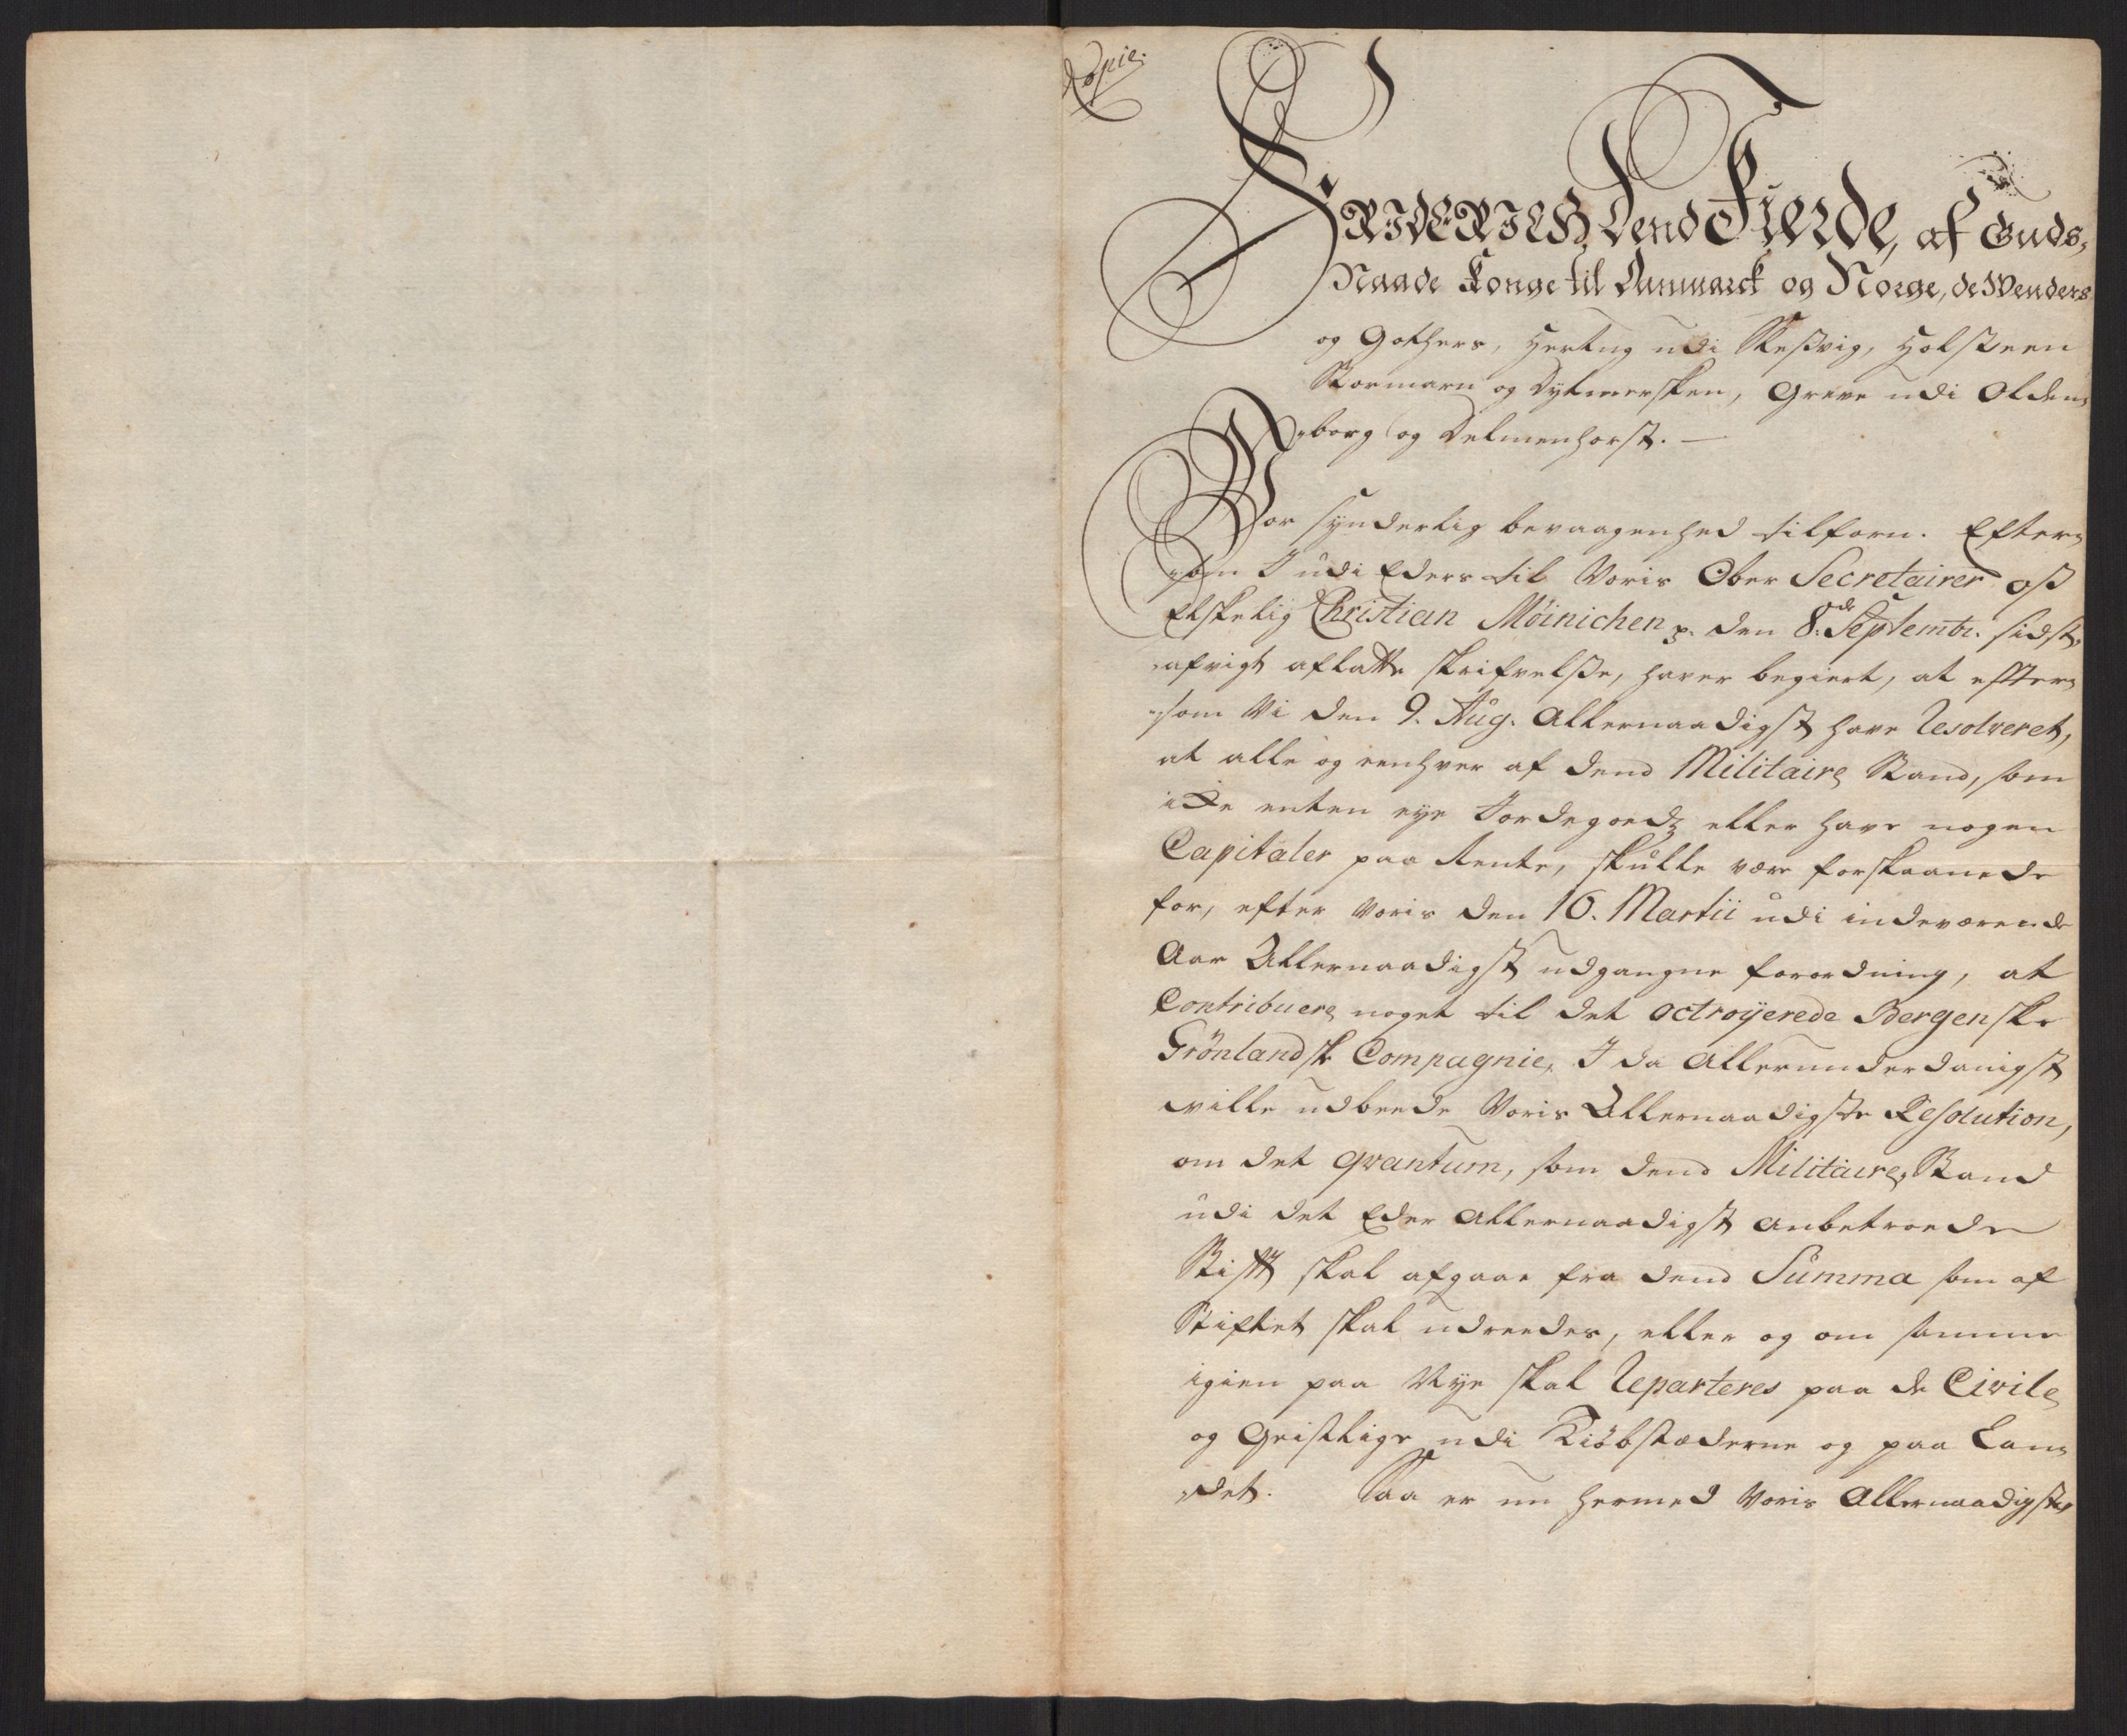 Copie.
FRIDERICH Dend Fierde, af Guds
Naade Konge til Danmarck og Norge, de Wenders
og Gothers, Hertug udi Slesvig, Holsteen
Stormarn og Dytmersken, Greve udi Olden-
-borg og Delmenhorst. —
Vor synderlig bevaagenhed tilforn. Efter-
-som I udi Eders til Voris Ober Secretairer oß
Elskelig Christian Möinichen p. den 8de Septembr. sidst-
-afvigt aflatte skrifvelße, haver begiert, at efter-
-som Vi den 9. Aug. Allernaadigst have Resolveret,
at alle og eenhver af dend Militaire Stand, som
icke enten eye Jordegoedz eller have nogen
Capitaler paa Rente, skulle være forskaanede
for, efter Voris den 16. Martii udi indeværende
Aar Allernaadigst udgangne forordning, at
Contribuere noget til det octroyerede Bergenske
Grönlandsk Compagnie, I da Allerunderdanigst
wille udbeede Voris Allernaadigste Resolution,
om det qvantum, som dend Militaire Stand
udi det Eder Allernaadigst anbetroede
Stift skal afgaae fra dend Summa som af
Stiftet skal udreedes, eller og om samme
igien paa Nye skal Reparteres paa de Civile
og Geistlige udi Kiöbstæderne og paa Lan-
-det. Saa er nu hermed Voris Allernaadigste